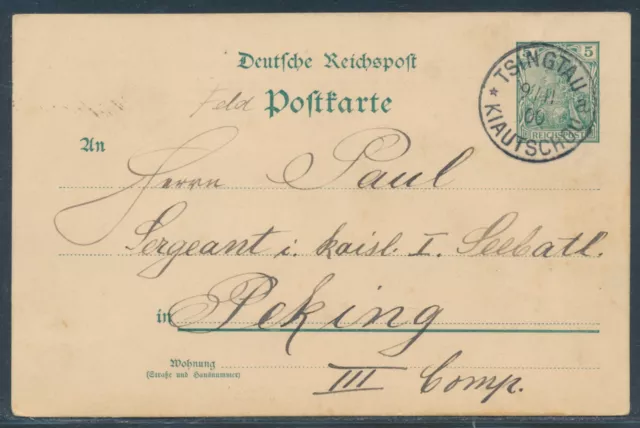 Deutsche Reichspost
Feld Postkarte
5
REICHSPOST
TSINGTAU
KIAUTSCHOU
00
An
Herrn Paul
Sergeant i. Kaisl. I. Seebatl.
in Peking
Wohnung
(Straße und Hausnummer)
III Comp.